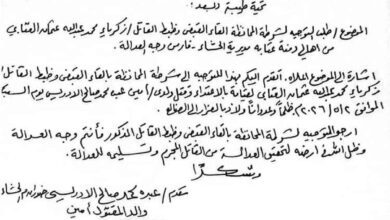 تحية طيبة وبعد؛
الموضوع / طلب التوجيه لشرطة المحافظة بالقاء القبض وضبط القاتل / زكرياء محمد عبدالله عثمان العتابي
من اهالي دمنة عتابه مديرية الحشاء - فار من وجه العدالة.
اشارة الى الموضوع اعلاه، اتقدم اليكم بهذا للتوجيه الى شرطة المحافظة بالقاء القبض وضبط القاتل /
زكرياء محمد عبدالله عثمان العتابي لقيامه بالاعتداء وقتل ولدي / امين عبده محمد صالح الادريسي يوم السبت
الموافق ٢٠٢٦/٥/٢ ظلماً وعدواناً ولاذ بالفرار الى الضالع.
ارجو التوجيه لشرطة المحافظة بالقاء القبض وضبط القاتل المذكور فأنتم وجه العدالة
وظل الله في ارضه لتحقيق العدالة من القاتل المجرم وتسليمه للعدالة.
وشكراً
مقدم / عبده محمد صالح الادريسي
والد المقتول أمين